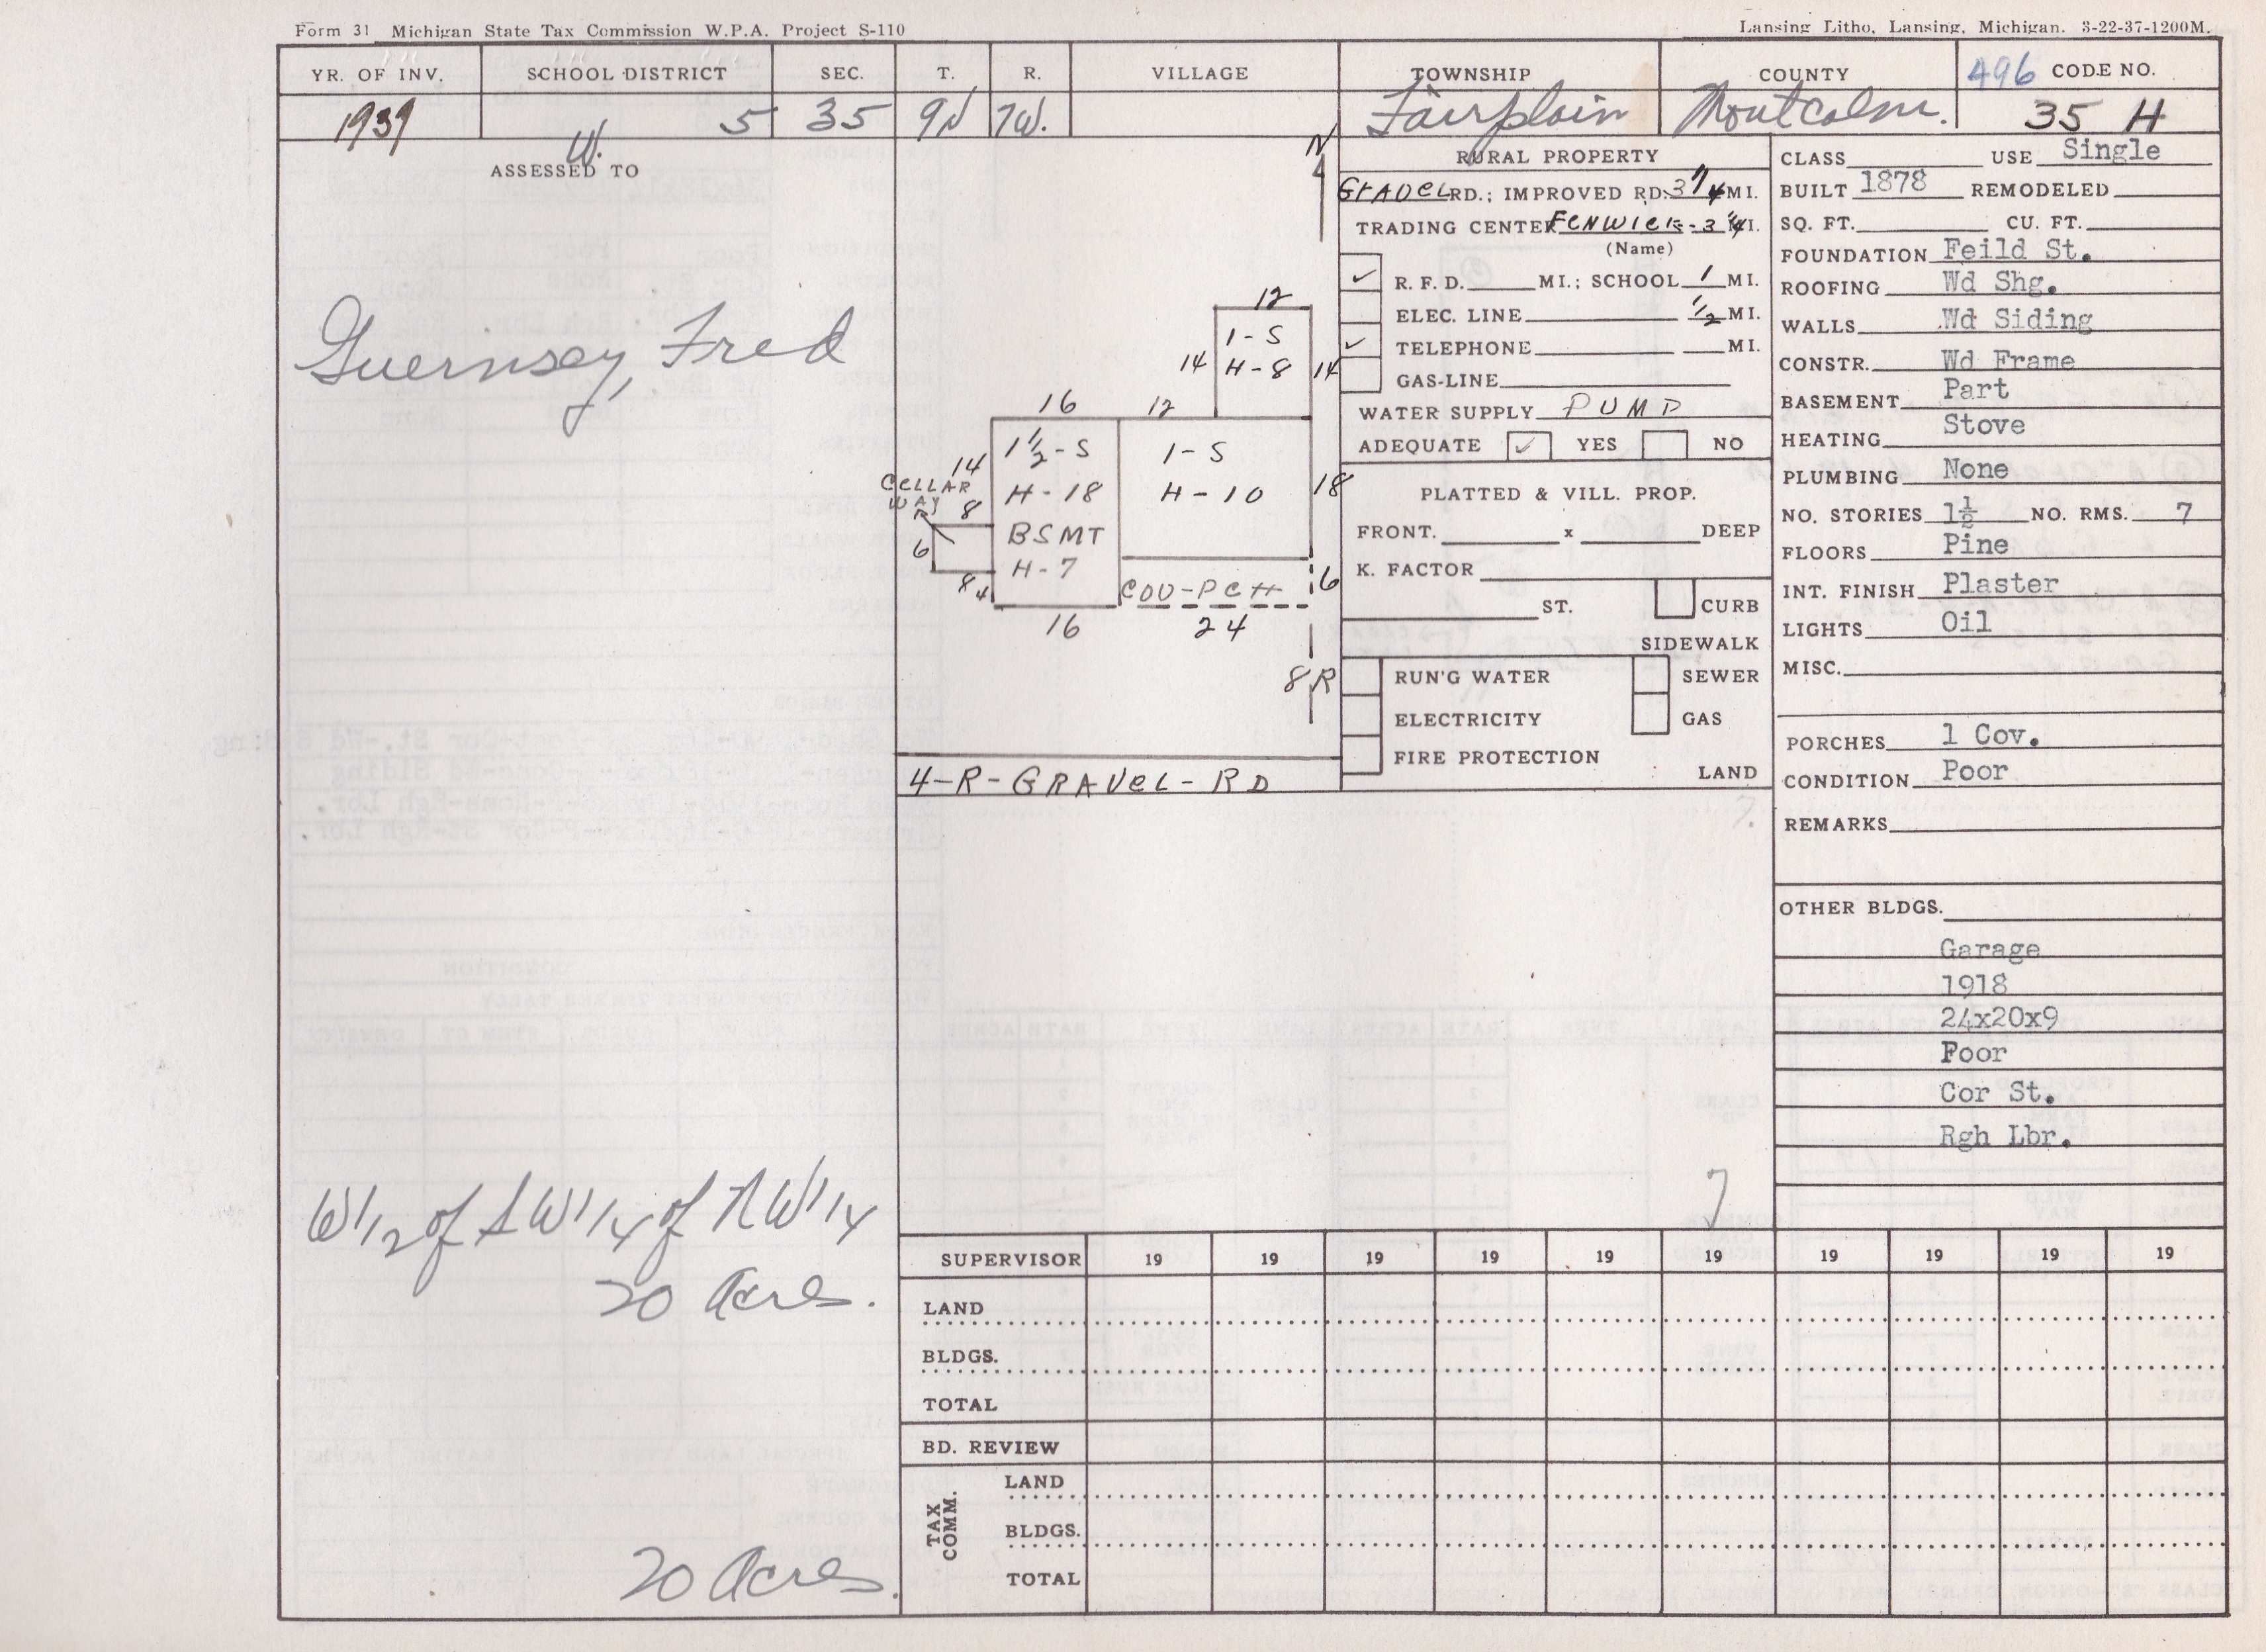 Form 31 Michigan State Tax Commission W.P.A. Project S-110
Lansing Litho, Lansing, Michigan. 3-22-37-1200M.
YR. OF INV. SCHOOL DISTRICT SEC. T. R. VILLAGE TOWNSHIP COUNTY 496 CODE NO.
1939 5 35 9N 7W. Fairplain Montcalm. 35 H
W.
ASSESSED TO
Guernsey, Fred
W 1/2 of SW 1/4 of NW 1/4
20 Acres.
20 Acres.
N
12
1-S
14 H-8 14
16 12
1 1/2-S 1-S
14
CELLAR H-18 H-10 18
WAY 8
6 BSMT
H-7
8 4 COV-PCH 6
16 24
8 R
4-R-GRAVEL-RD
RURAL PROPERTY
GRAVEL RD.; IMPROVED RD. 3 1/4 MI.
TRADING CENTER FENWICK-3 1/4 MI.
(Name)
✓ R. F. D. MI.; SCHOOL 1 MI.
ELEC. LINE 1/2 MI.
✓ TELEPHONE MI.
GAS-LINE
WATER SUPPLY PUMP
ADEQUATE ✓ YES NO
PLATTED & VILL. PROP.
FRONT. x DEEP
K. FACTOR
ST. CURB
SIDEWALK
RUN'G WATER SEWER
ELECTRICITY GAS
FIRE PROTECTION
LAND
7.
7
CLASS USE Single
BUILT 1878 REMODELED
SQ. FT. CU. FT.
FOUNDATION Feild St.
ROOFING Wd Shg.
WALLS Wd Siding
CONSTR. Wd Frame
BASEMENT Part
HEATING Stove
PLUMBING None
NO. STORIES 1½ NO. RMS. 7
FLOORS Pine
INT. FINISH Plaster
LIGHTS Oil
MISC.
PORCHES 1 Cov.
CONDITION Poor
REMARKS
OTHER BLDGS.
Garage
1918
24x20x9
Poor
Cor St.
Rgh Lbr.
SUPERVISOR 19 19 19 19 19 19 19 19 19 19
LAND
BLDGS.
TOTAL
BD. REVIEW
TAX COMM.
LAND
BLDGS.
TOTAL